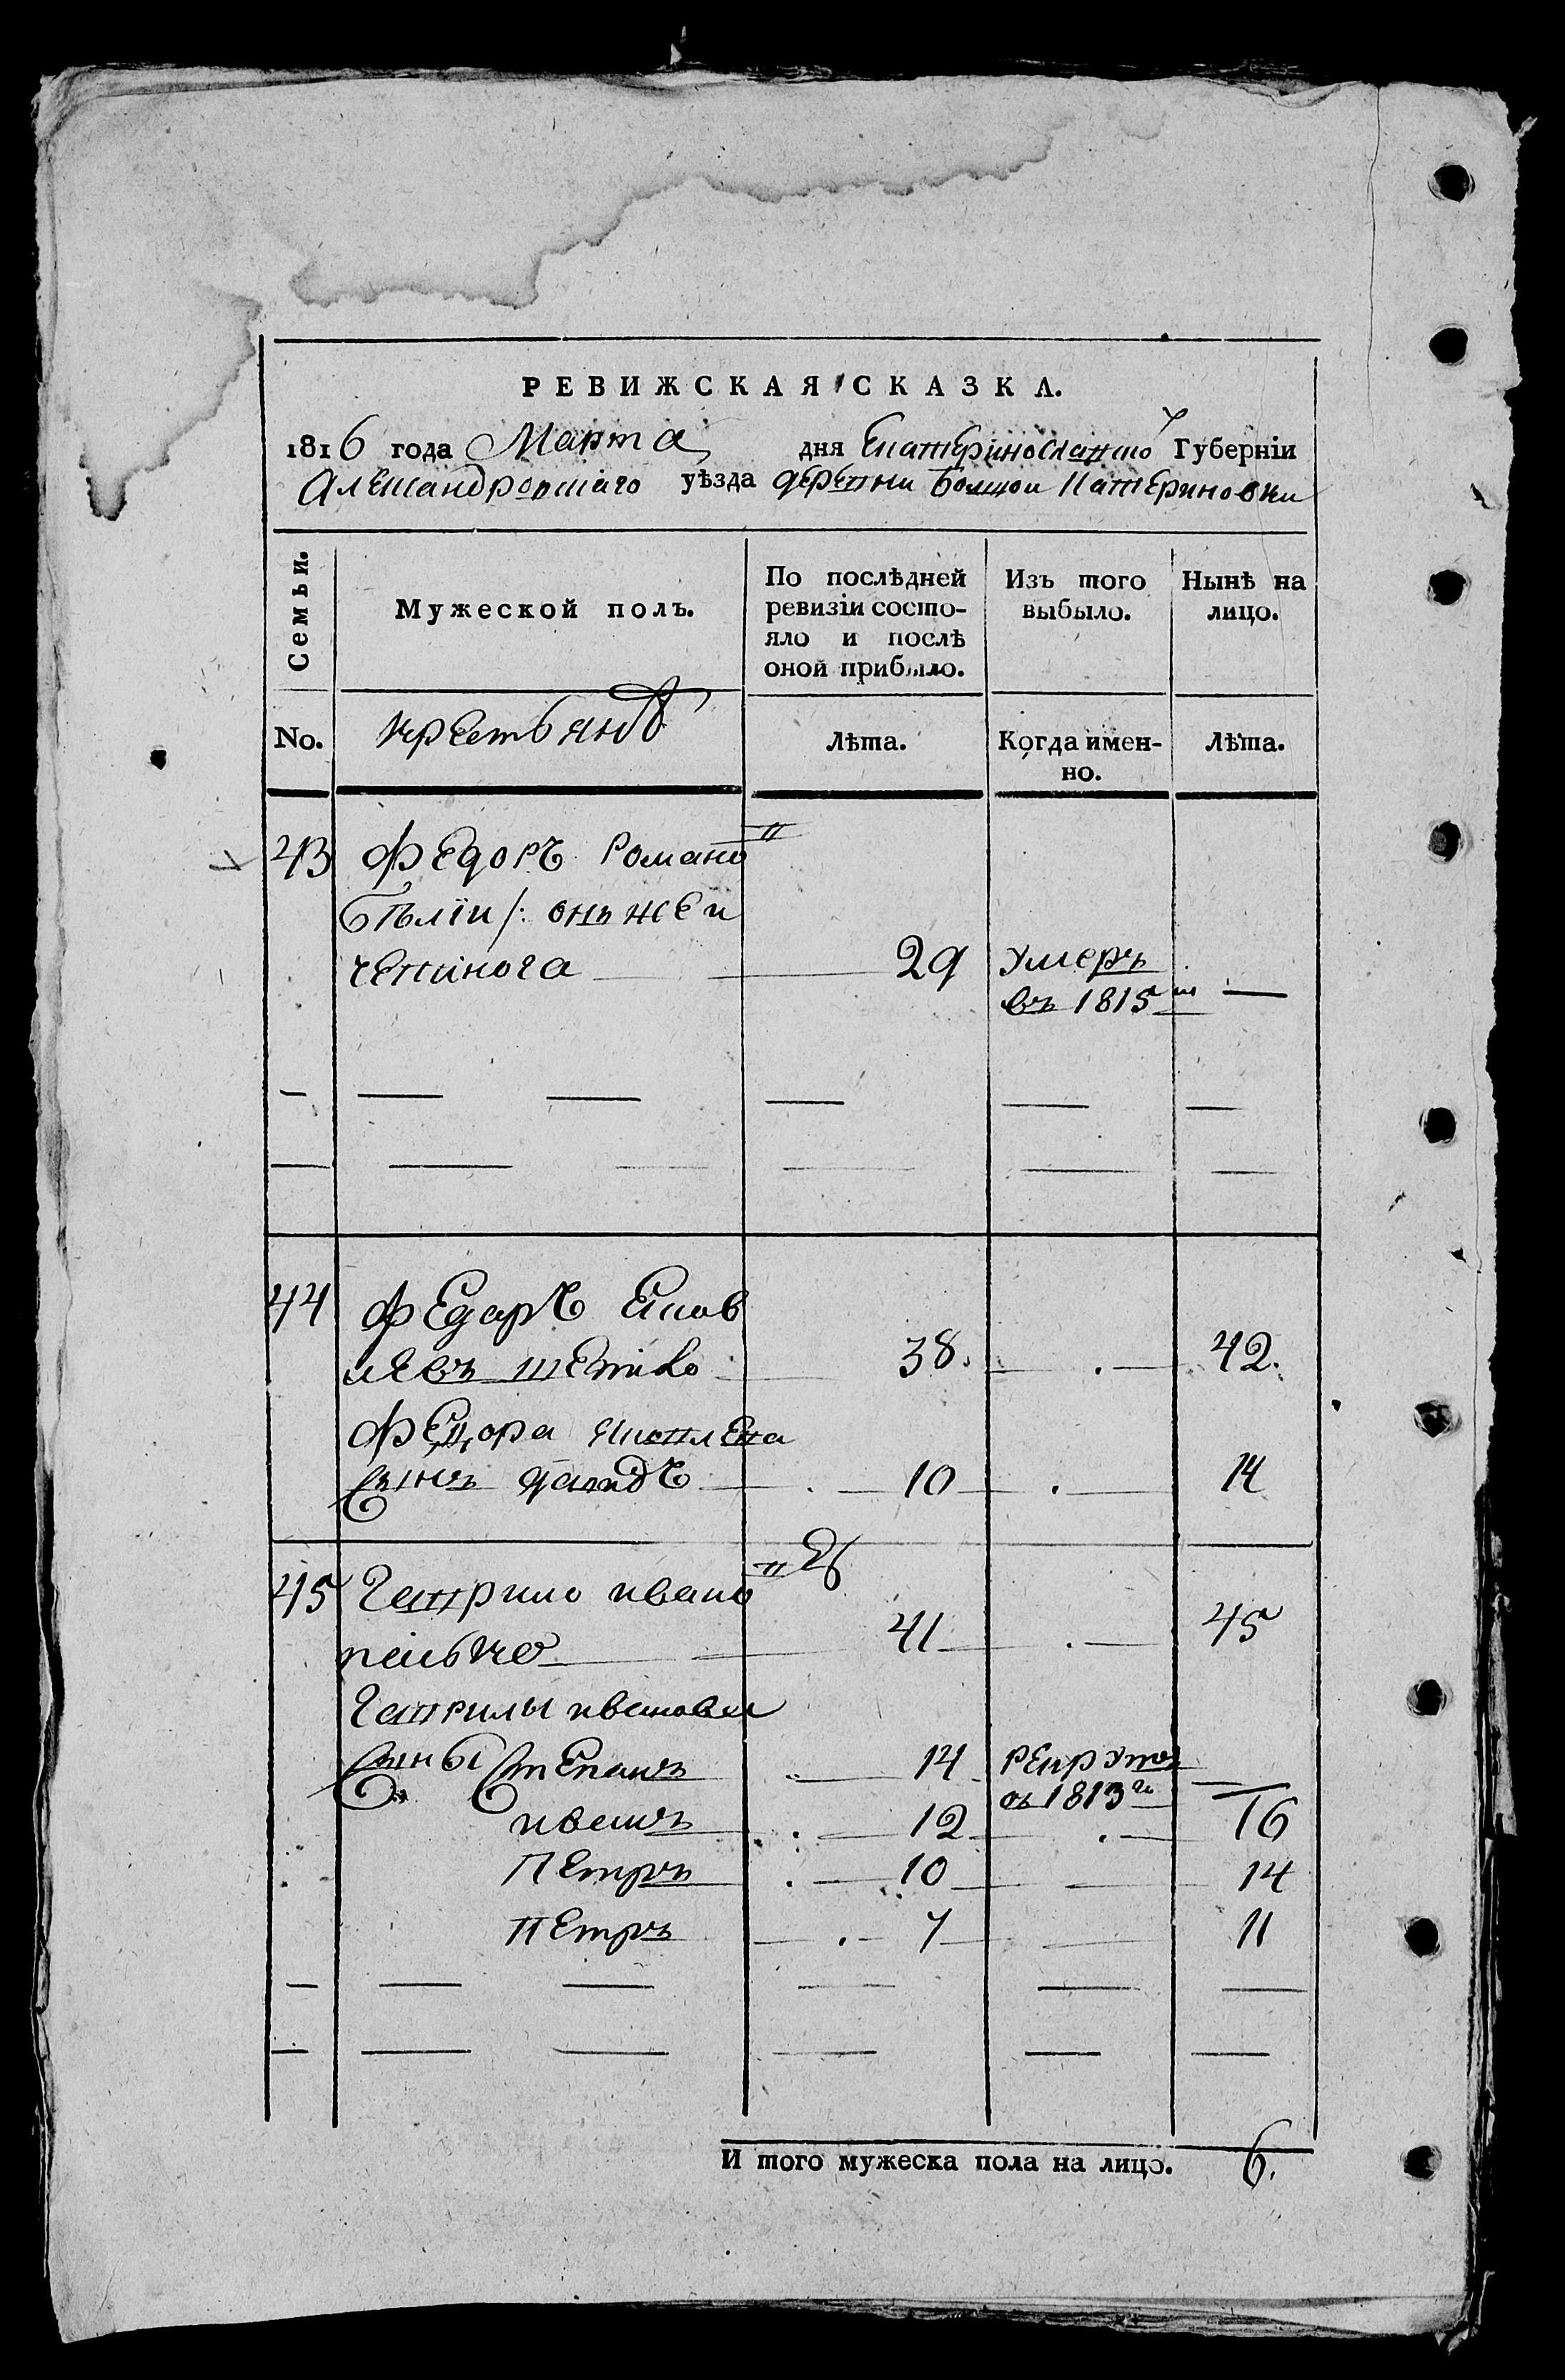 РЕВИЖСКАЯ СКАЗКА.
1816 года Марта дня Екатеринославской Губерніи
Александровскаго уѣзда деревни Болшой Катериновки
Семьи.
Мужеской полъ.
По послѣдней
ревизіи состо-
яло и послѣ
оной прибыло.
Изъ того
выбыло.
Нынѣ на
лицо.
No.
крестьянъ
Лѣта.
Когда имен-
но.
Лѣта.
43 Федоръ Романо
Бѣлїи /: онъ же и
29 умеръ
въ 1815 м —
44 Федаръ Яков
левъ 38. 42.
Федора Яковлева
сынъ давидъ 10 14
45 Гаврило ивано въ
41 45
Гаврилы иванова
сыны Степанъ 14 рекрутъ
въ 1813 г —
иванъ 12 16
Петръ 10 14
Петръ 7 11
И того мужеска пола на лицо. 6.